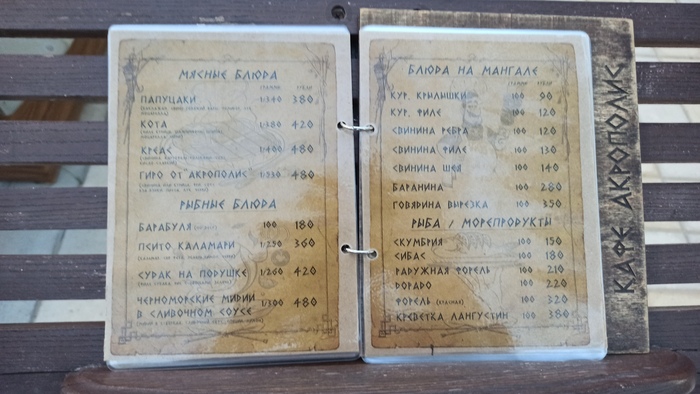 МЯСНЫЕ БЛЮДА
ПАПУЦАКИ 1/340 380
КОТА 1/380 420
КРЕАС 1/400 480
ГИРО ОТ "АКРОПОЛИС" 1/550 480
РЫБНЫЕ БЛЮДА
БАРАБУЛЯ 100 180
ПСИТО КАЛАМАРИ 1/250 360
СУДАК НА ПОДУШКЕ 1/260 420
ЧЕРНОМОРСКИЕ МИДИИ
В СЛИВОЧНОМ СОУСЕ 1/300 480
БЛЮДА НА МАНГАЛЕ
КУР. КРЫЛЫШКИ 100 90
КУР. ФИЛЕ 100 120
СВИНИНА РЕБРА 100 120
СВИНИНА ФИЛЕ 100 130
СВИНИНА ШЕЯ 100 140
БАРАНИНА 100 280
ГОВЯДИНА ВЫРЕЗКА 100 350
РЫБА / МОРЕПРОДУКТЫ
СКУМБРИЯ 100 150
СИБАС 100 180
РАДУЖНАЯ ФОРЕЛЬ 100 210
DОРАДО 100 220
ФОРЕЛЬ (КРАСНАЯ) 100 320
КРЕВЕТКА ЛАНГУСТИН 100 380
КАФЕ АКРОПОЛИС